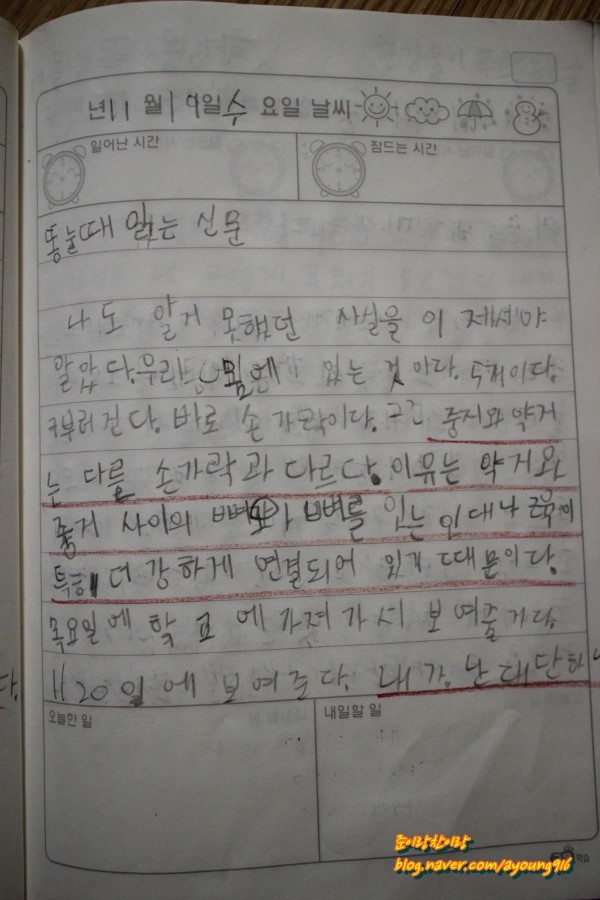 년 11 월 19일 수 요일 날씨
일어난 시간
잠드는 시간
똥눌때 읽는 신문
나도 알거 못했던 사실을 이제서야
알았다. 우리 몸에 있는 것이다. 두개이다.
구부러진다. 바로 손가락이다. 그건 중지와 약지
는 다를 손가락과 다르다. 이유는 약거와
중거 사이의 뼈와 뼈를 잇는 인대나 근육이
특히 더 강하게 연결되어 있게 때문이다.
목요일에 학교에 가져가서 보여줄거다.
11 20일에 보여준다. 내가 난 대단하
오늘한 일
내일할 일
준이랑찬이랑
blog.naver.com/ayoung916
학습